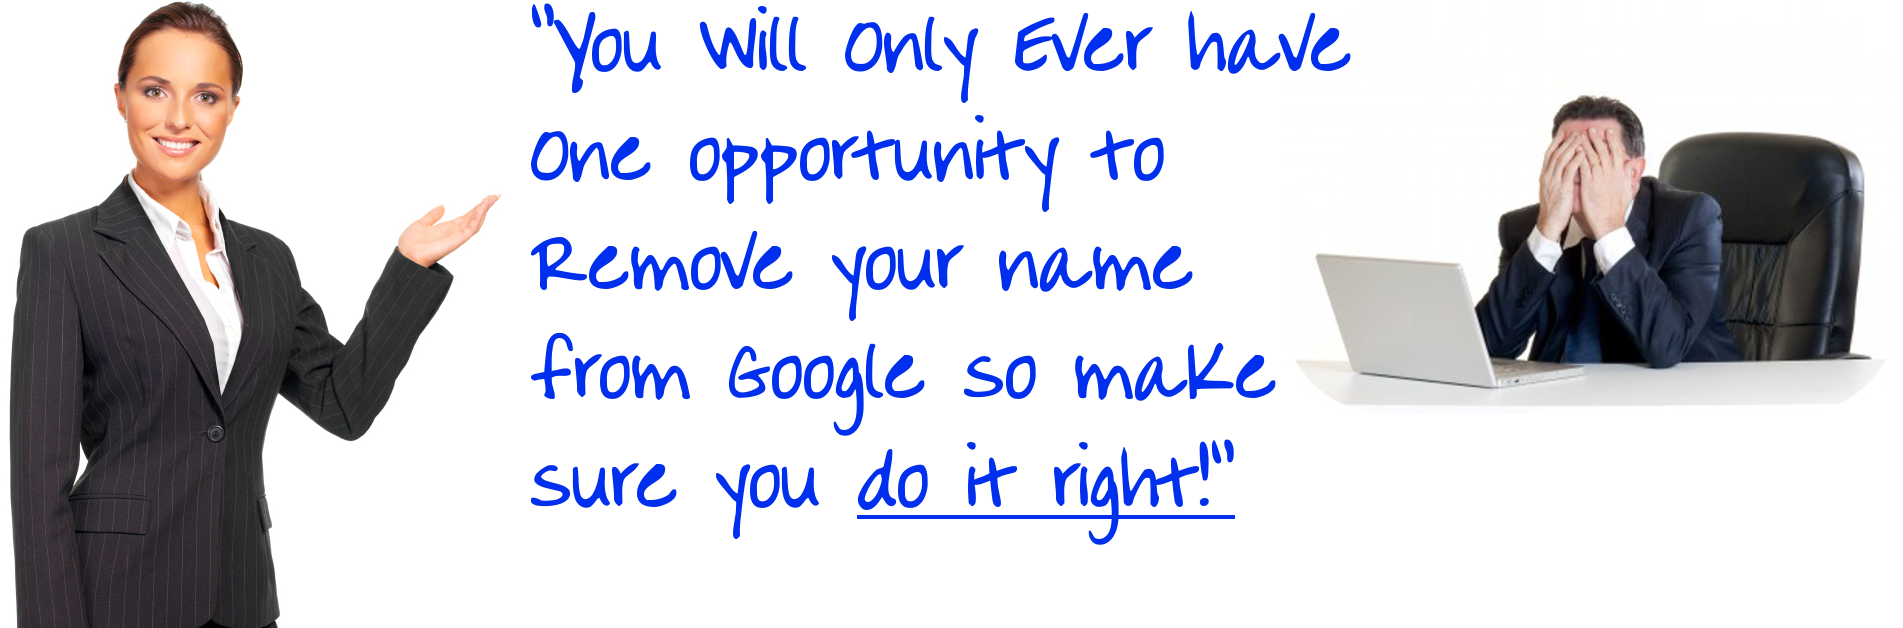 "You Will Only Ever have
One opportunity to
Remove your name
from Google so make
sure you do it right!"